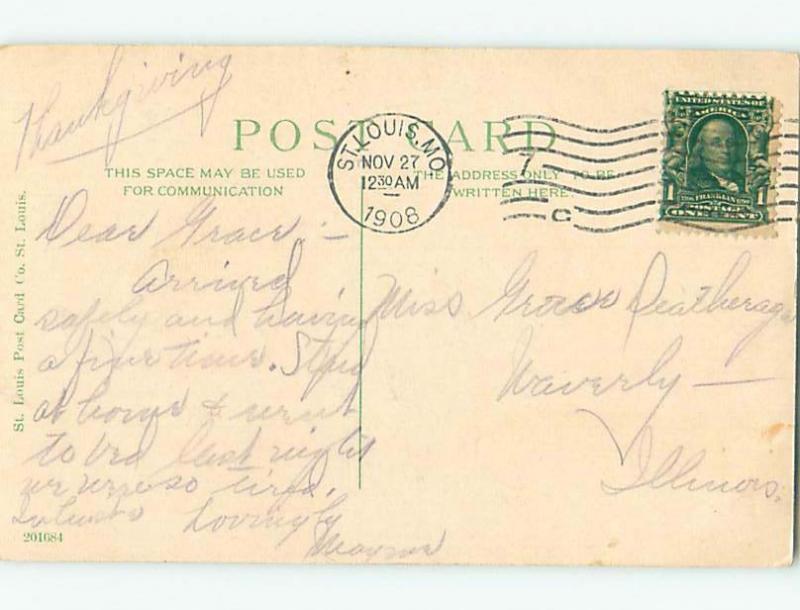 Thanksgiving
POST CARD
THIS SPACE MAY BE USED
FOR COMMUNICATION
THE ADDRESS ONLY TO BE
WRITTEN HERE
ST. LOUIS, MO.
NOV 27
12 30 AM
1908
7
C
UNITED STATES OF
AMERICA
FRANKLIN
1 1
ONE CENT
St. Louis Post Card Co. St. Louis.
Dear Grace:-
Arrived
safely and having
a fine time. Stayed
at home & went
to bed last night
we were so tired.
Lovingly
201684
Miss Grace Deatherage
Waverly
Illinois.